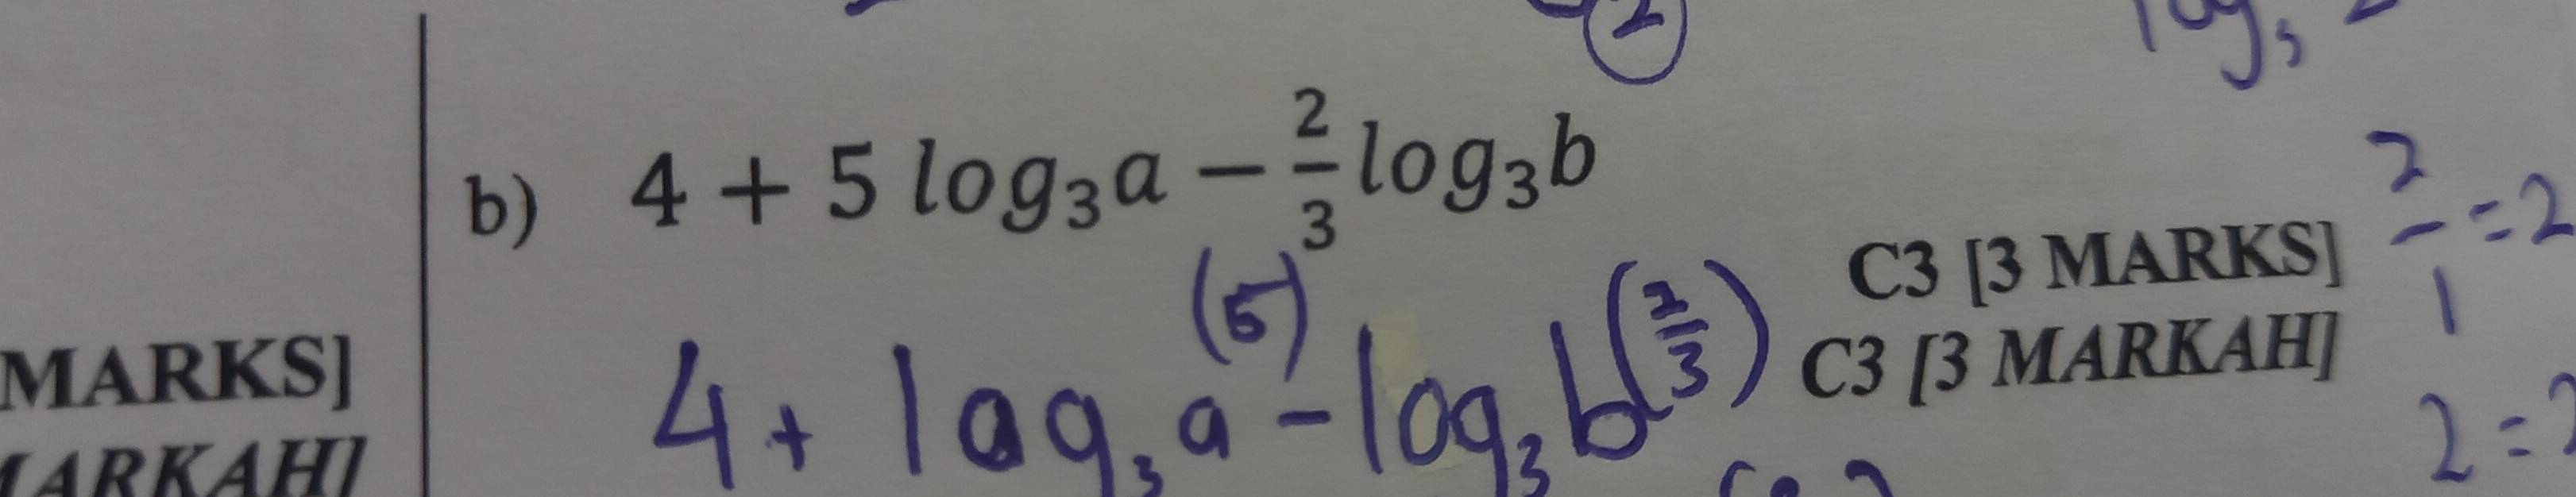 b) 4 + 5 log₃a − 2/3 log₃b
C3 [3 MARKS]
C3 [3 MARKAH]
MARKS]
MARKAH]
4 + log₃ a⁽⁵⁾ − log₃ b^(2/3)
2/1 = 2
2 =